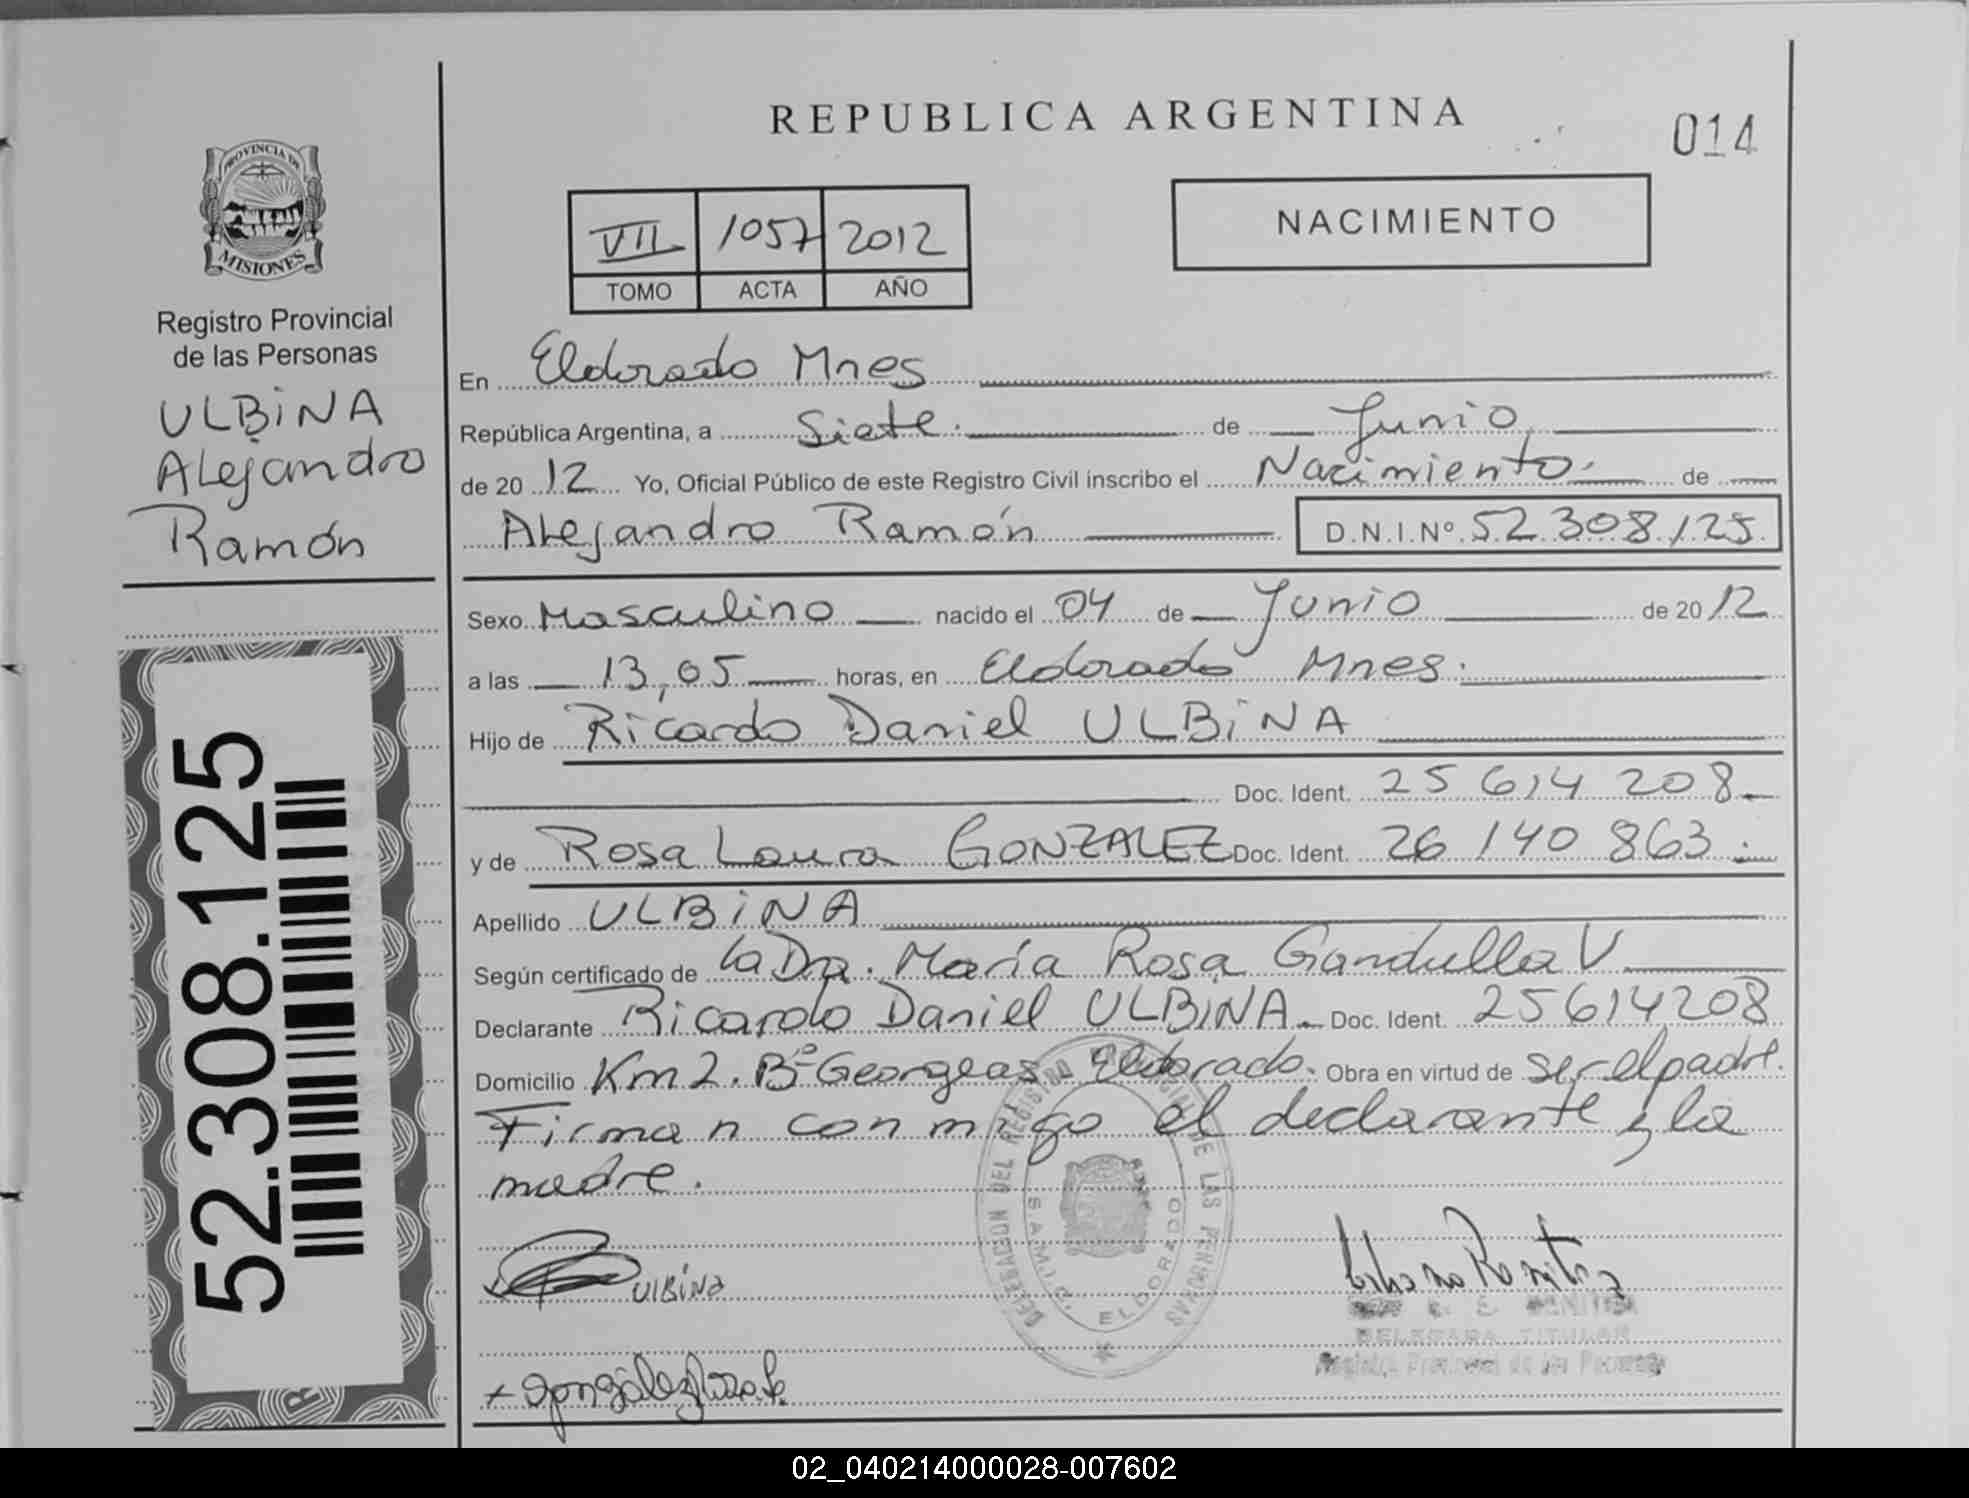 REPUBLICA ARGENTINA
014
PROVINCIA DE
MISIONES
Registro Provincial
de las Personas
ULBINA
Alejandro
Ramón
52.308.125
VII 1057 2012
TOMO ACTA AÑO
NACIMIENTO
En Eldorado Mnes
República Argentina, a Siete. de Junio
de 2012 Yo, Oficial Público de este Registro Civil inscribo el Nacimiento. de
Alejandro Ramón D.N.I.Nº 52.308.125.
Sexo Masculino nacido el 04 de Junio de 2012
a las 13,05 horas, en Eldorado Mnes.
Hijo de Ricardo Daniel ULBINA
Doc. Ident. 25 614 208.
y de Rosa Laura GONZALEZ Doc. Ident. 26 140 863.
Apellido ULBINA
Según certificado de la Dra. María Rosa Gandulla V.
Declarante Ricardo Daniel ULBINA. Doc. Ident. 25614208
Domicilio Km 2. Bº Georgeas Eldorado. Obra en virtud de ser el padre.
Firman conmigo el declarante y la
madre.
DELEGACION DEL REGISTRO PROVINCIAL DE LAS PERSONAS
ELDORADO
ULBINA
DELEGADA TITULAR
Registro Provincial de las Personas
+ Gonzalez
02_040214000028-007602